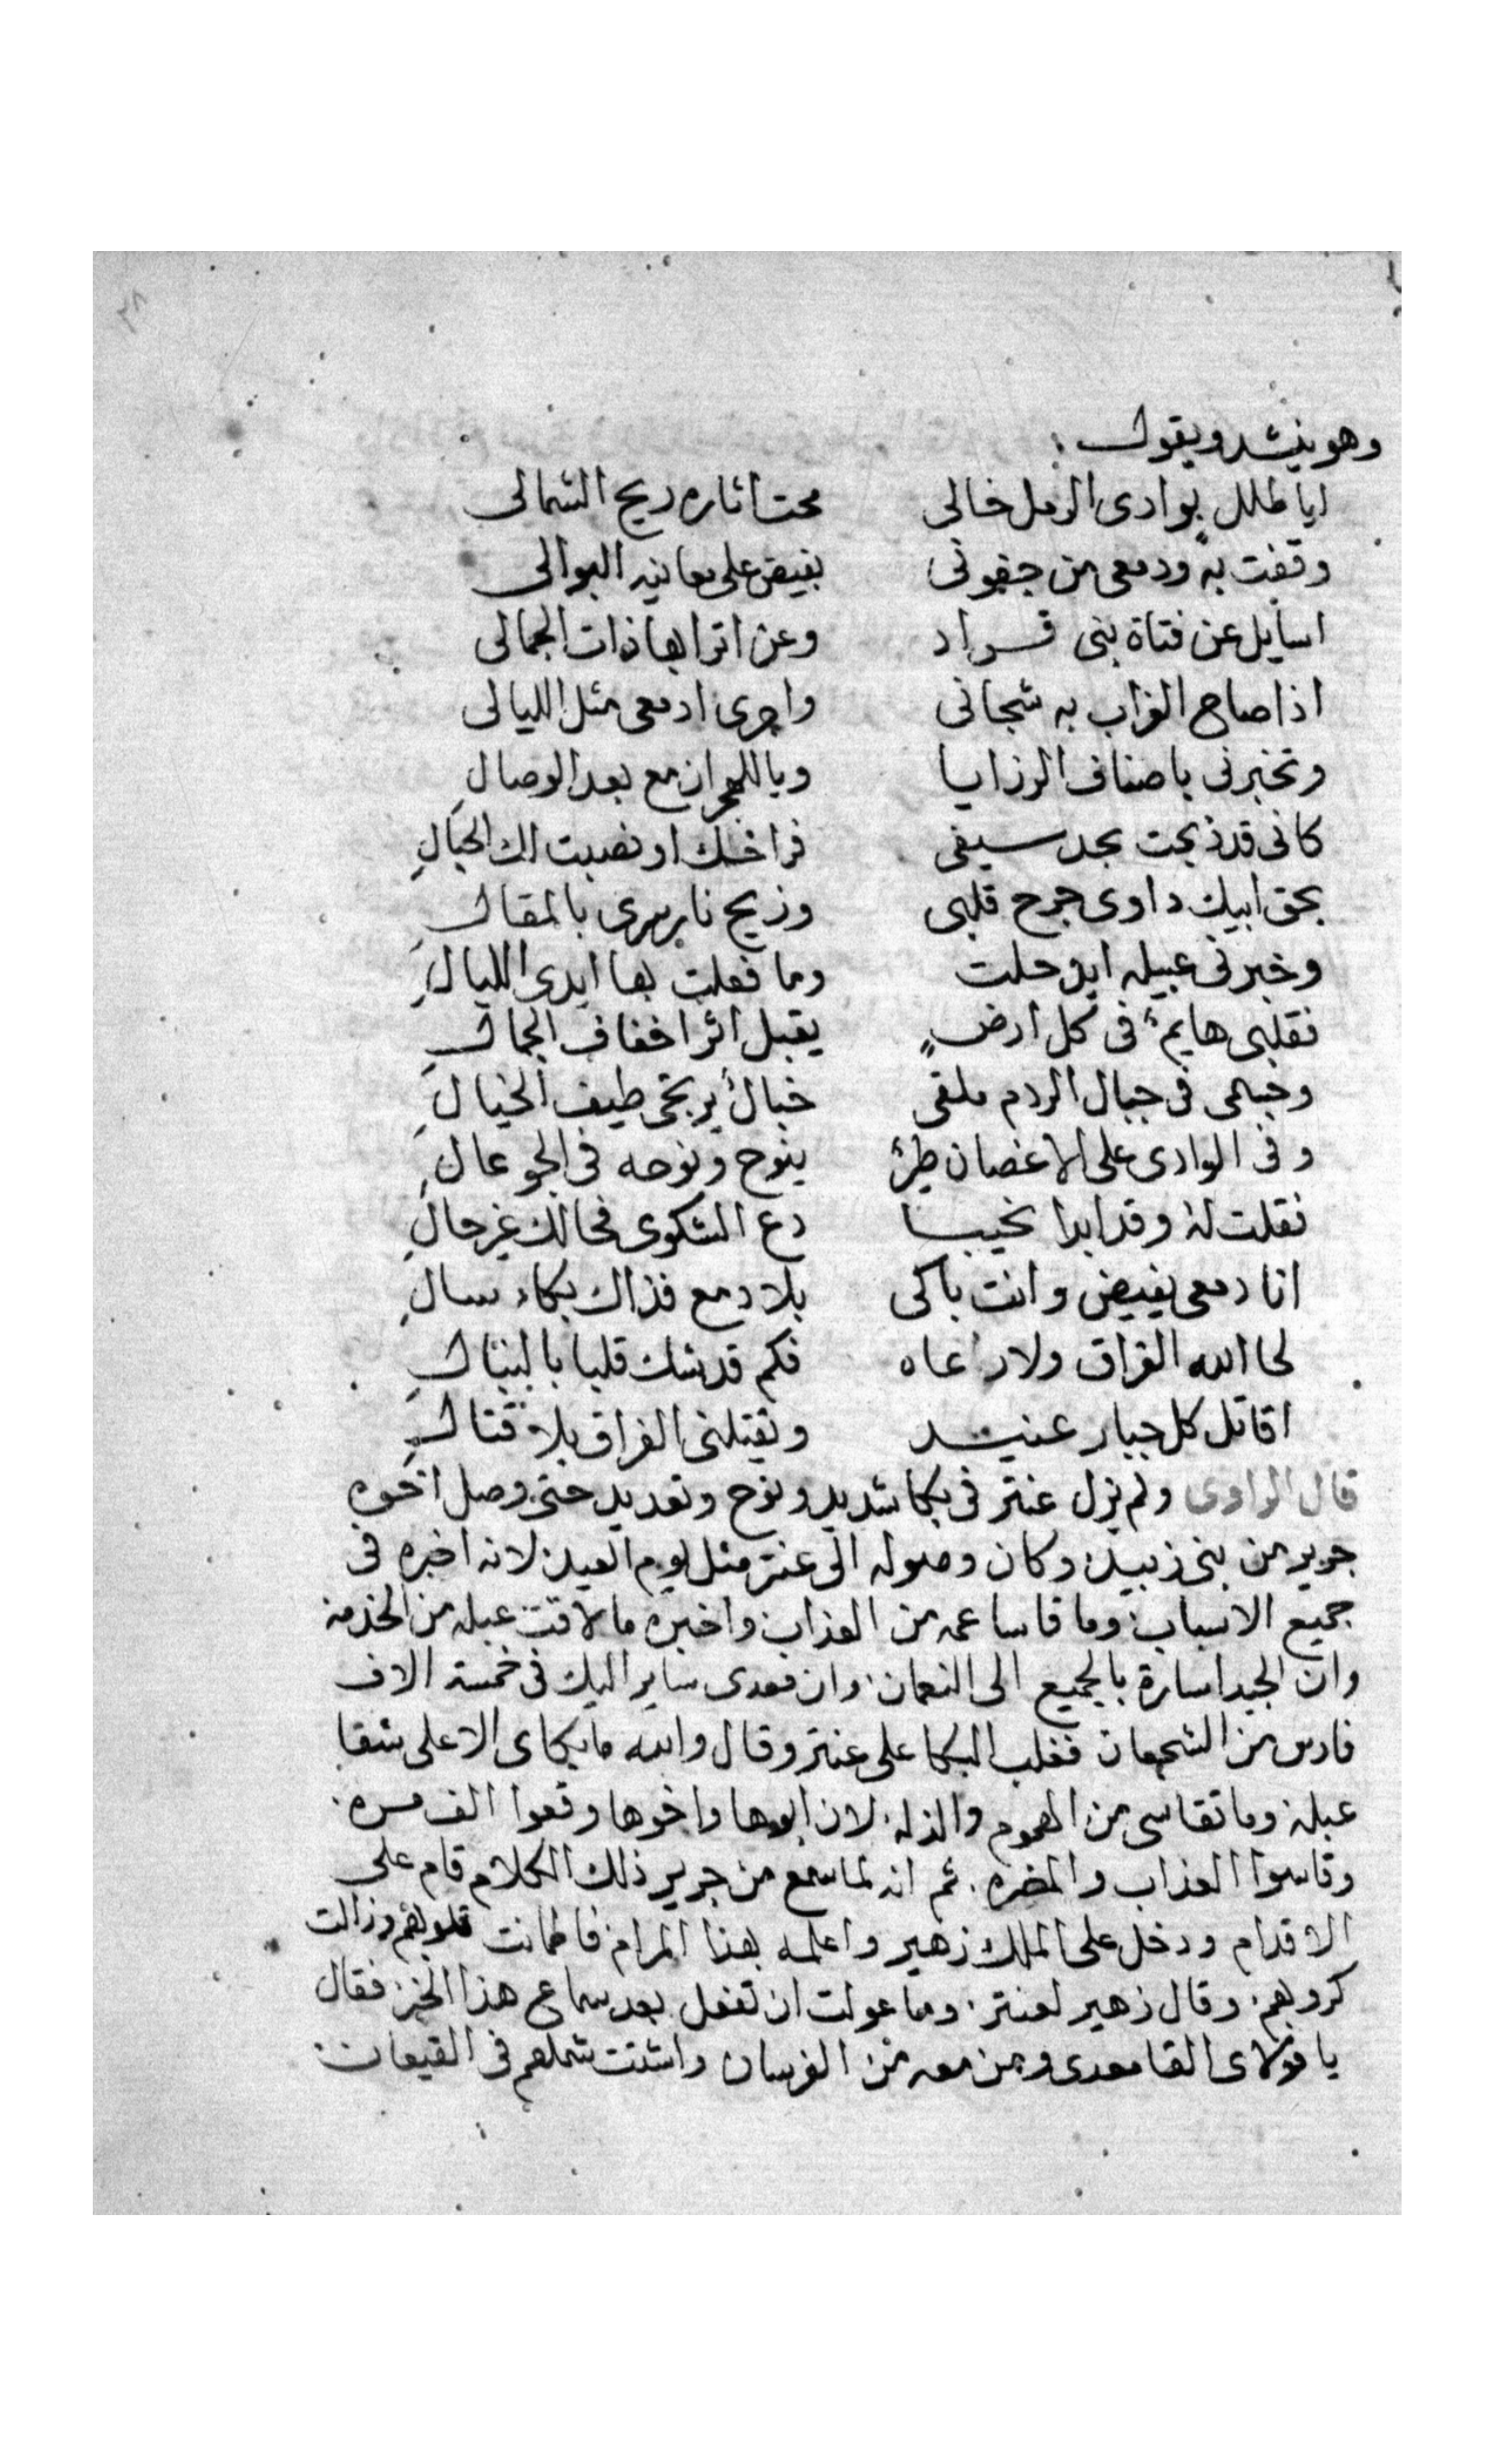 ٢٨
وهو ينشد ويقول :
ايا طلل بوادى الرمل خالى محت اثاره ريح الشمالى
وقفت به ودمعى من جفونى يفيض على معانيه البوالى
اسايل عن فتاة بنى قراد وعن اترابها ذات الجمالى
اذا صاح الغراب به شجانى واجرى ادمعى مثل الليالى
وتخبرنى باصناف الرزايا وبالهجران مع بعد الوصال
كانى قد ذبحت بحد سيفى فراخك او نصبت لك الحبال
بحق ابيك داوى جرح قلبى وزيح نار سرى بالمقال
وخبرنى عبيله اين حلت وما فعلت بها ايدى الليال
فقلبى هايم فى كل ارض يقبل اثر اخفاف الجمال
وجسمى فى جبال الردم ملقى خيال يرتجى طيف الخيال
وفى الوادى على الاغصان طير ينوح ونوحه فى الجو عال
فقلت له وقد ابدا نحيبا دع الشكوى فحالك غير حال
انا دمعى يفيض وانت باكى بلا دمع فذاك بكاء سال
لحا الله الفراق ولا رعاه فكم قد شك قلبا بالنبال
اقاتل كل جبار عنيد وتقتلنى الفراق بلا قتال
قال الراوى ولم يزل عنتر فى بكا شديد ونوح وتعديد حتى وصل اخوه
جرير من بنى زبيد وكان وصوله الى عنتر مثل يوم العيد لانه اخبره فى
جميع الاسباب وما قاسا عمه من العذاب واخبره ما لاقت عبله من الخدمه
وان الجيدا سارة بالجميع الى النعمان وان معدى ساير اليك فى خمسة الاف
فارس من الشجعان فغلب البكا على عنتر وقال والله ما بكاى الا على شقا
عبلة وما تقاسى من الهموم والذله لان ابوها واخوها وقعوا الف مره
وقاسوا العذاب والمضره ثم انه لما سمع من جرير ذلك الكلام قام على
الاقدام ودخل على الملك زهير واعلمه بهذا المرام فاطمانت قلوبهم وزالت
كروبهم وقال زهير لعنتر وما عولت ان تفعل بعد سماع هذا الخبر فقال
يا مولاى القا معدى ومن معه من الفرسان واشتت شملهم فى القيعان